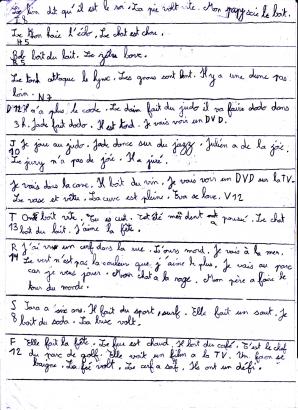 Le lion dit qu'il est le roi. La pie volt te. Mon papy scie le bois.
L 8
Le thon haie l'école, Le chat est doux.
H 5
Bob boit du lait. Le zèbre bave.
B 5
Le tonk attaque le hyxe. Les geons sont bons. Il y a une dame pas
loin. N 7
D 12 Il n'a plus le code. Le daim fait du judo il va faire dodo dans
3 h. Jade fait dodo. Il est tard. Je vais voir un DVD.
J Je jou au judo. Jade danse sur du jazz. Julien a de la joie.
10
Le jury n'a pas de joie. Il a juré.
Je vais dans la cave. Il boit du vin. Je vais voir un DVD sur la TV.
Le vase et vite. La cuve est pleine. Eva se lave. V12
T boit vite. Tu es cuit. Le chat
13 boit du lait. J'aime la fête.
R J'ai vu un cerf dans la rue. L'ours mord. Je vais à la mer.
14 Le vert n'est pas la couleur que j'aime le plus. Je vais au parc
car je veux jouer. Mon chat a la rage. Mon père a faire le
tour du monde.
S Sara a six ans. Il fait du sport, surf. Elle fait un saut. Je
8 boit du soda. La buse volt.
F Elle fait la fête. Le feu est chaud. Il boit du café. C'est le chef
12 du parc de golf. Elle voit un film a la TV. Un faon se
baigne. La fée volt. Le cerf a soif. Ils ont un défi.